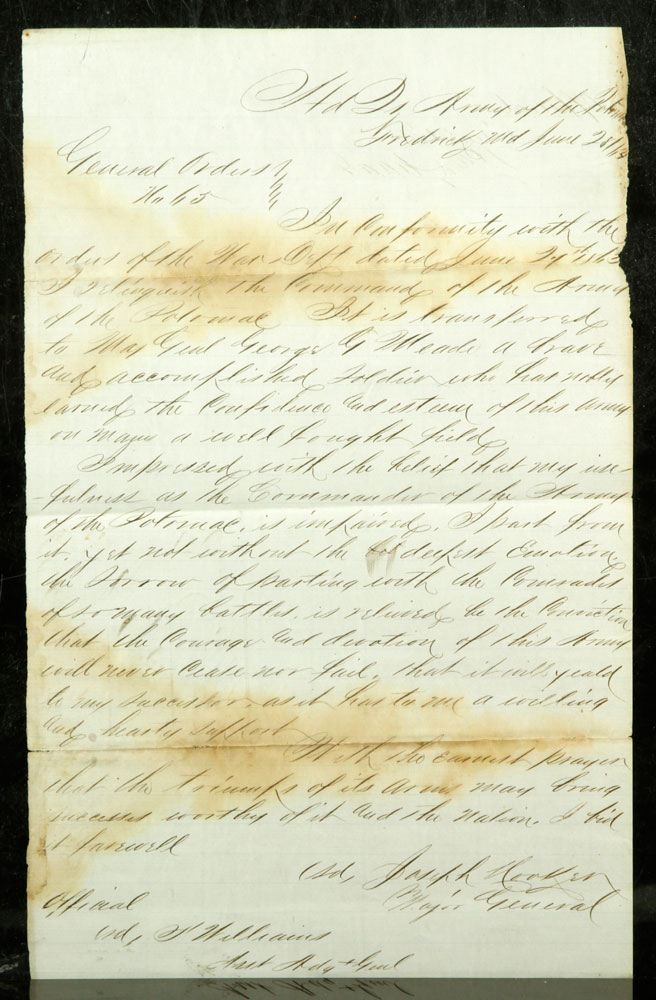 Hd Qr Army of the Poto
Fredrick Md June 28/63
General Orders
No 65
In Conformity with the
orders of the War Dept dated June 27th 1863
I relinquish the Command of the Army
of the Potomac It is transferred
to Maj Genl George G Meade a brave
and accomplished Soldier who has nobly
earned the Confidence and esteem of this Army
on many a well fought field
Impressed with the belief that my use-
-fulness as the Commander of the Army
of the Potomac, is impaired, I part from
it, yet not without the deepest Emotion,
the Sorrow of parting with the Comrades
of so many battles, is relieved be the Conviction
that the Courage and devotion of this Army
will never Cease nor fail, that it will yeald
to my successor, as it has to me a willing
and hearty support
With the earnest prayer
that the triumps of its arms may bring
success worthy of it and the Nation, I bid
it farewell
Joseph Hooker
Major General
Official
S Williams
Asst Adjt Genl